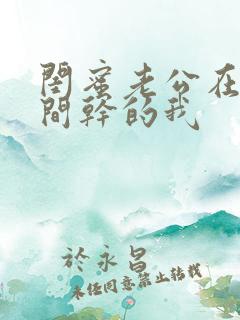 閨蜜老公在
間幹的我
於永昌
未任同意禁止转载